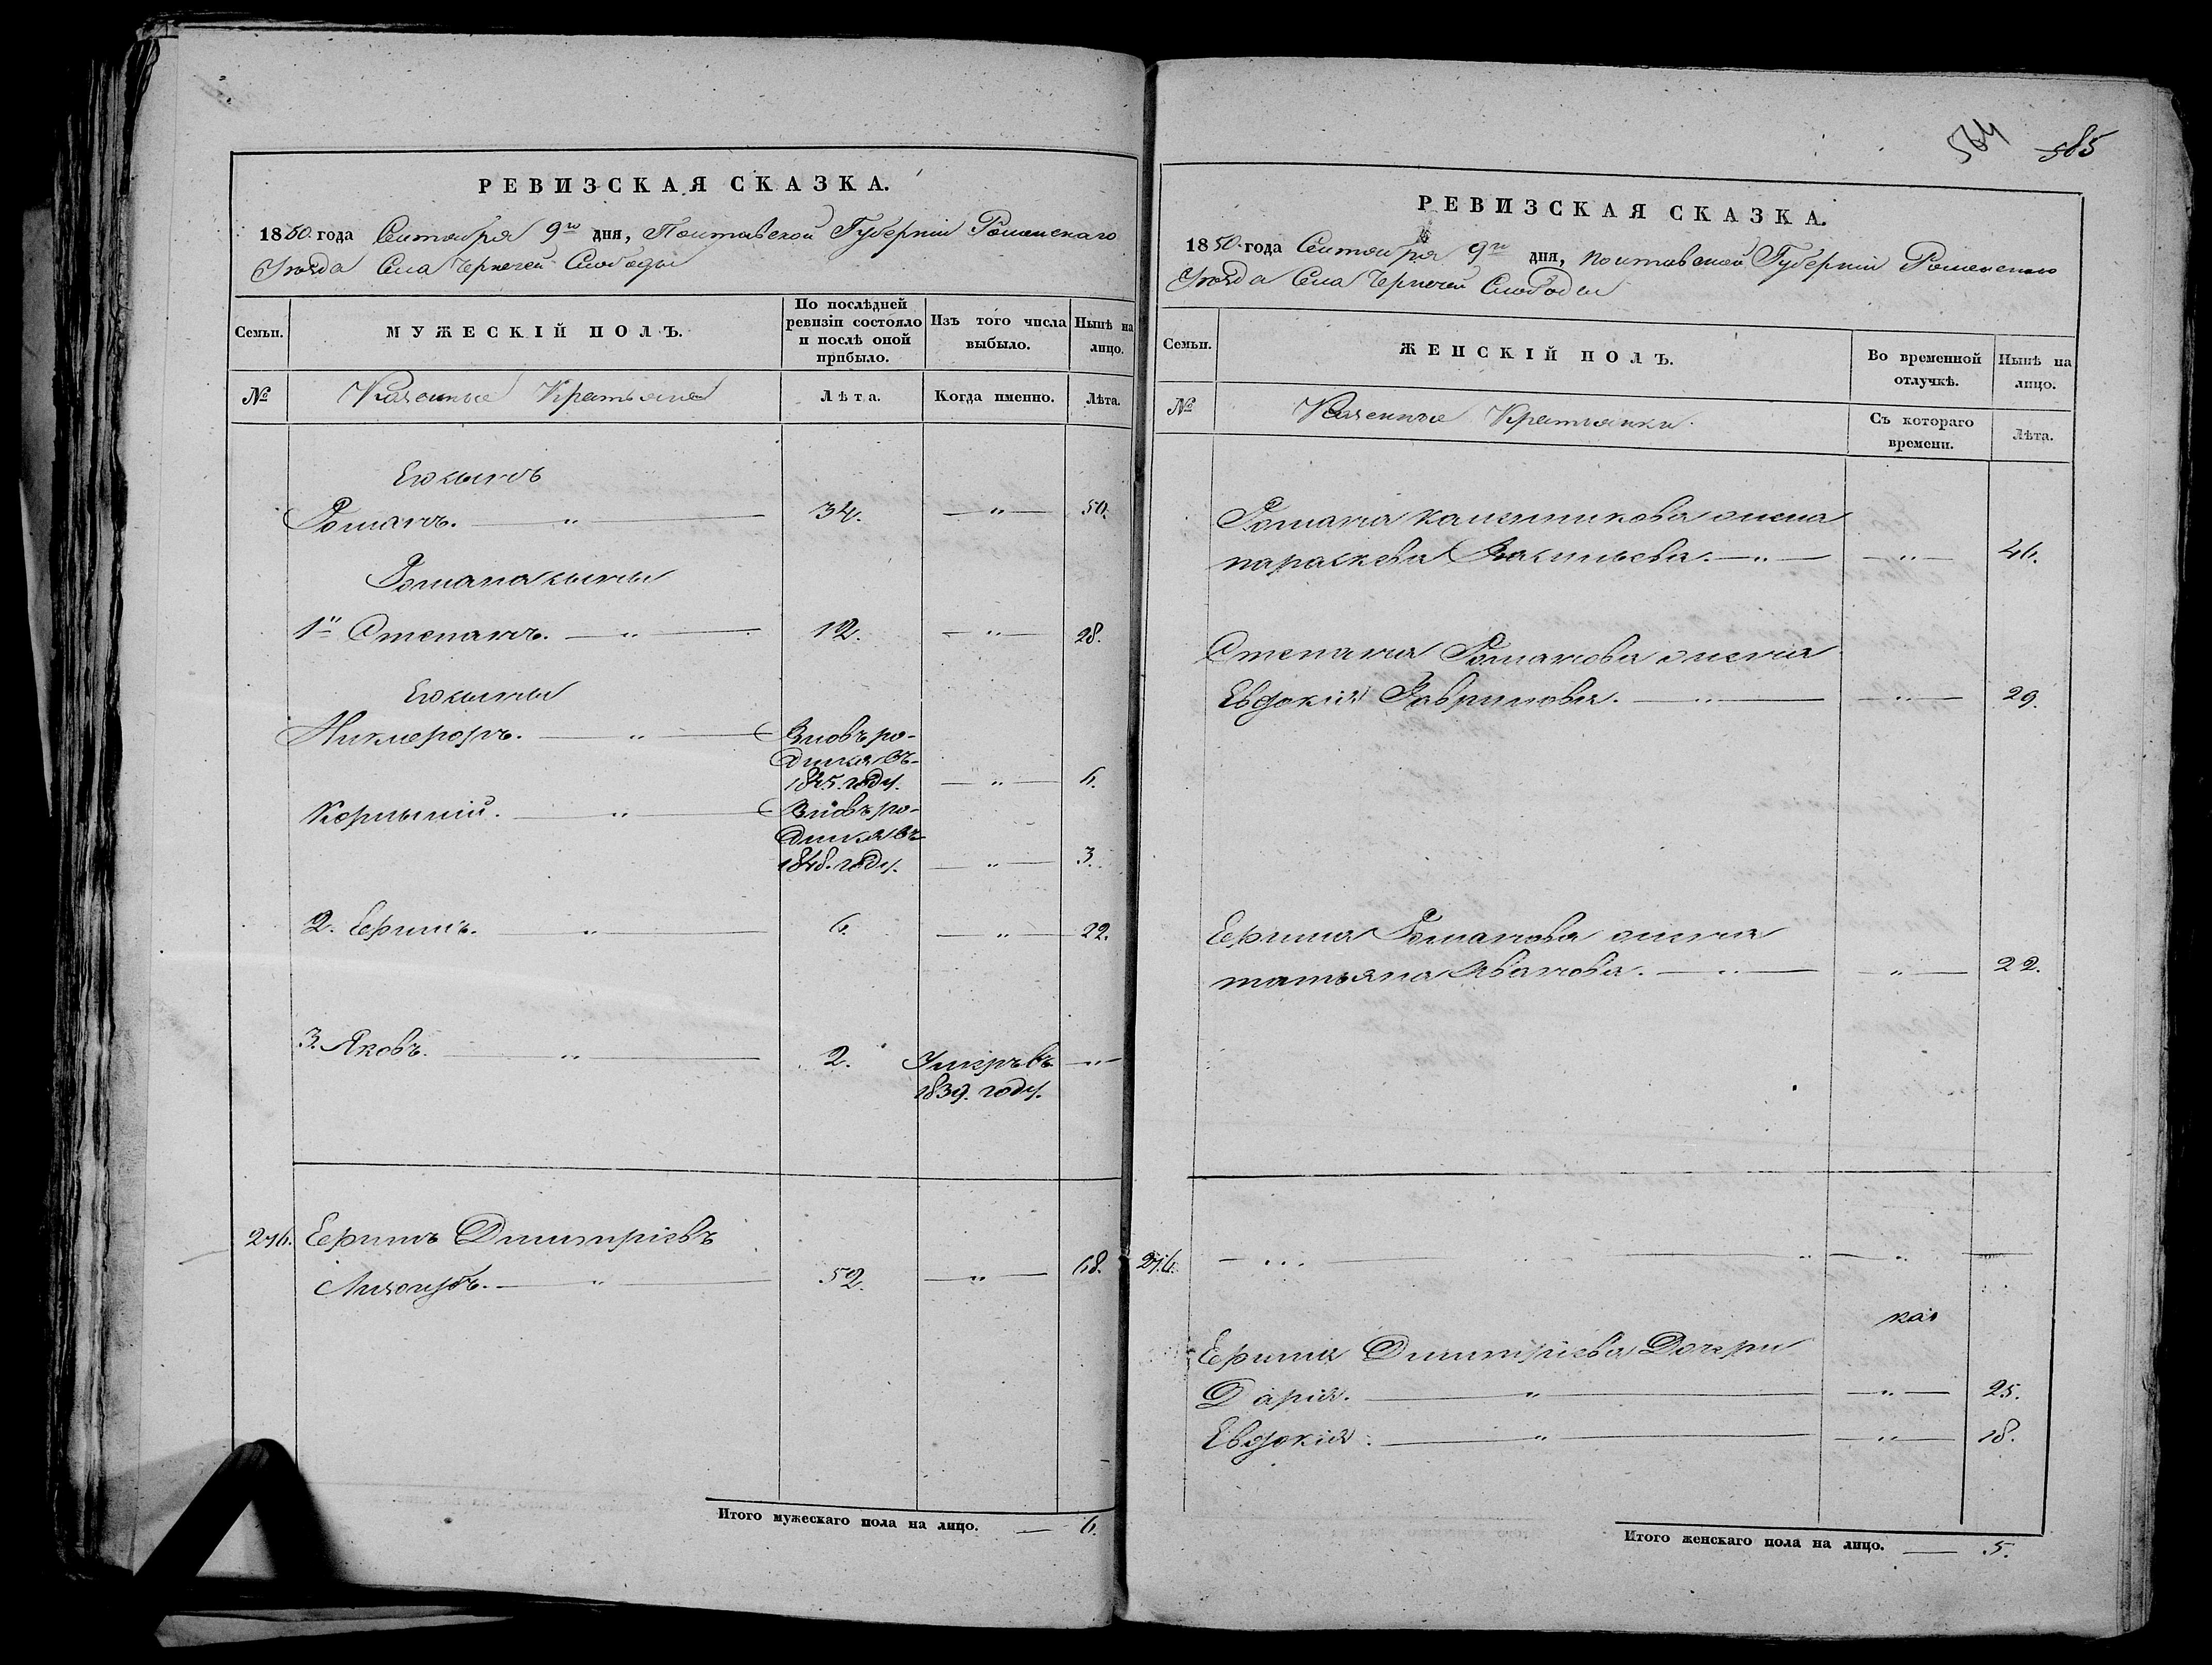 РЕВИЗСКАЯ СКАЗКА.
1850 года Сентября 9го дня, Полтавской Губерніи Роменскаго
Уѣзда Села Чернечей Слободы
Семьи.
МУЖЕСКІЙ ПОЛЪ.
По послѣдней ревизіи состояло и послѣ оной прибыло.
Изъ того числа выбыло.
Нынѣ на лицо.
№
Казенные Крестьяне
Лѣта.
Когда именно.
Лѣта.
Его сынъ
Романъ. — " — 34. — " — 50.
Романа сыны
1й Степанъ. — " — 12. — " — 28.
Его сыны
Никифоръ. — " — Вновь ро-
дился въ
1845. году. — " — 6.
Корнылій. — " — Вновь ро-
дился въ
1848. году. — " — 3.
2. Ефимъ. — " — 6. — " — 22.
3. Яковъ. — " — 2. Умеръ въ — " —
1839. году.
276. Ефимъ Димитріевъ
Лизогубъ. — " — 52. — " — 68.
Итого мужескаго пола на лицо. — 6.
564 585
РЕВИЗСКАЯ СКАЗКА.
1850 года Сентября 9го дня, Полтавской Губерніи Роменскаго
Уѣзда Села Чернечей Слободы
Семьи.
ЖЕНСКІЙ ПОЛЪ.
Во временной отлучкѣ.
Нынѣ на лицо.
№
Казенные Крестьянки.
Съ котораго времени.
Лѣта.
Романа жена
параскева Васильева. — " — — " — 46.
Степана Романова жена
Евдокія Гаврилова. — " — — " — 29.
Ефима Романова жена
татьяна Иванова. — " — — " — 22.
276. — " — — " —
Ефима Димитріева Дочери
Дарія. — " — — " — 25.
Евдокія. — " — — " — 18.
Итого женскаго пола на лицо. — 5.